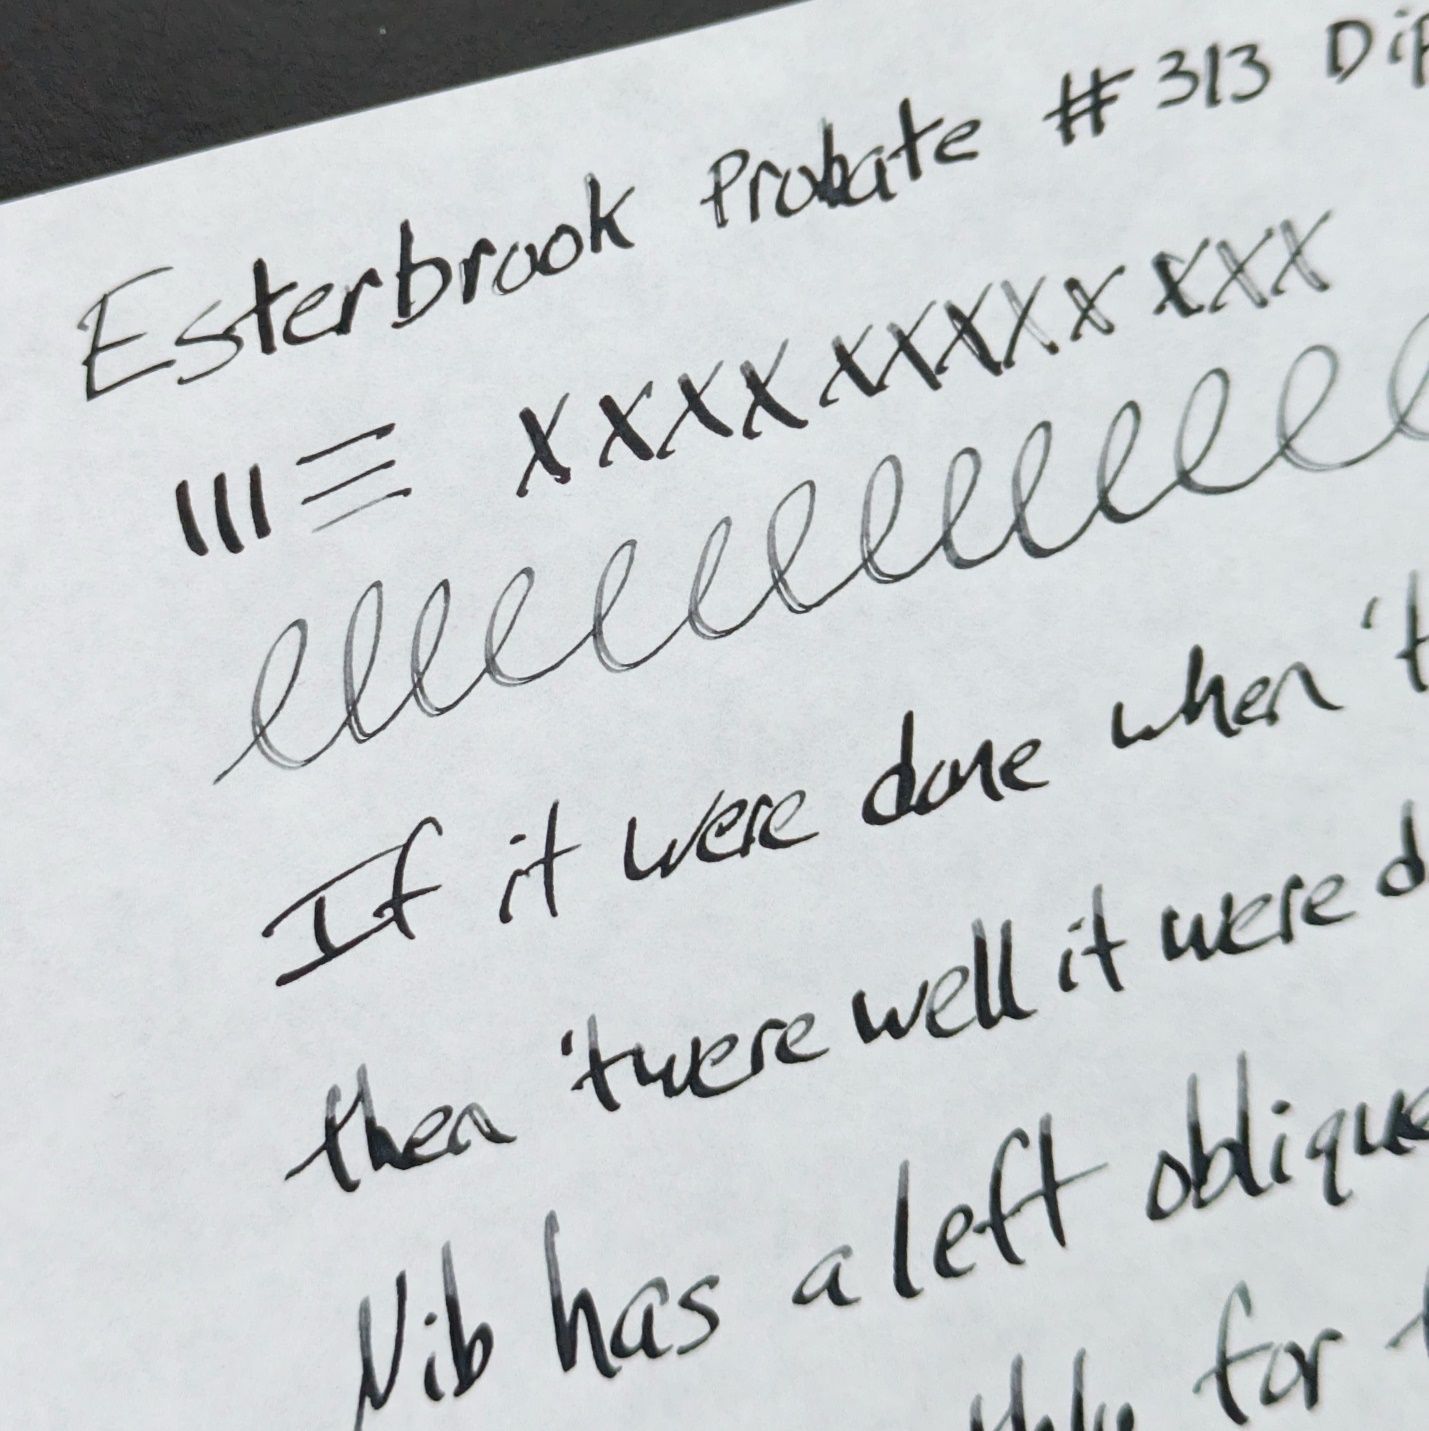 Esterbrook Probate #313 Dip
III ≡ x x x x x x x x x x x x
llllllllllll
If it were done when 't
then 'twere well it were d
Nib has a left oblique
for t